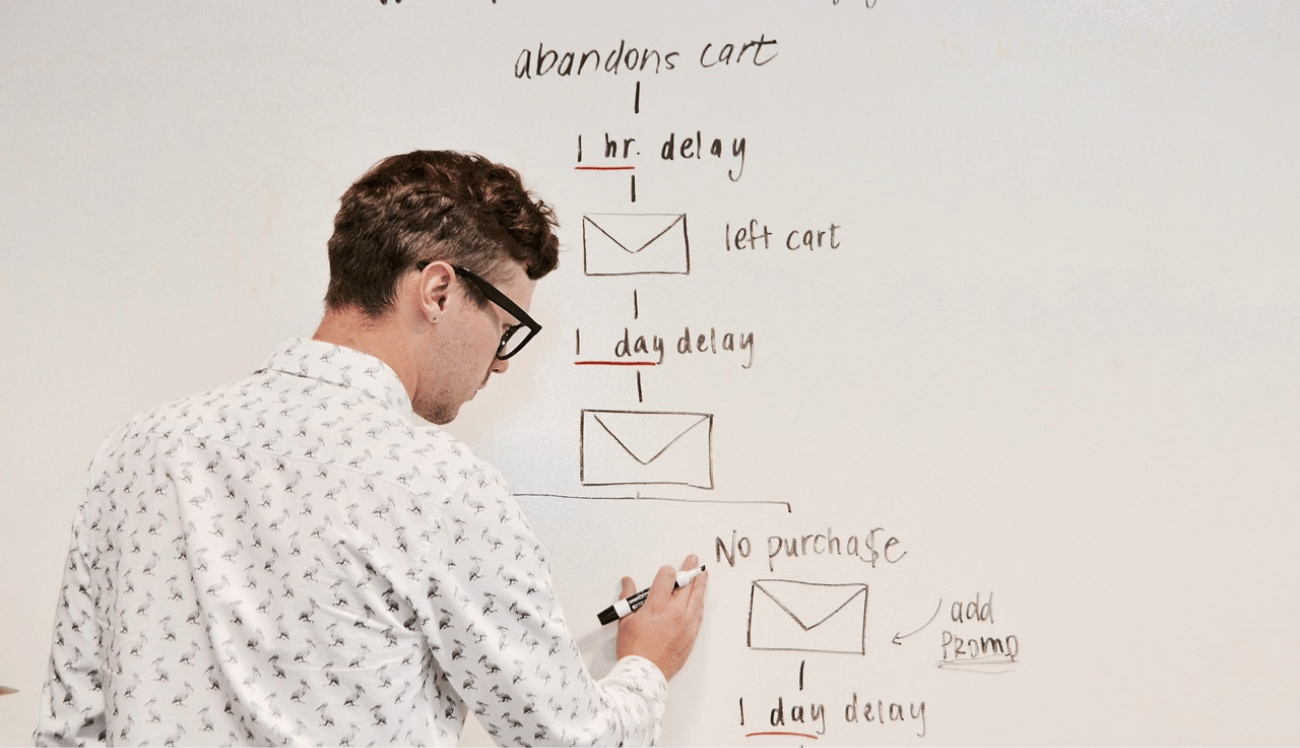 abandons cart
1 hr. delay
left cart
1 day delay
No purcha$e
add
PROMO
1 day delay